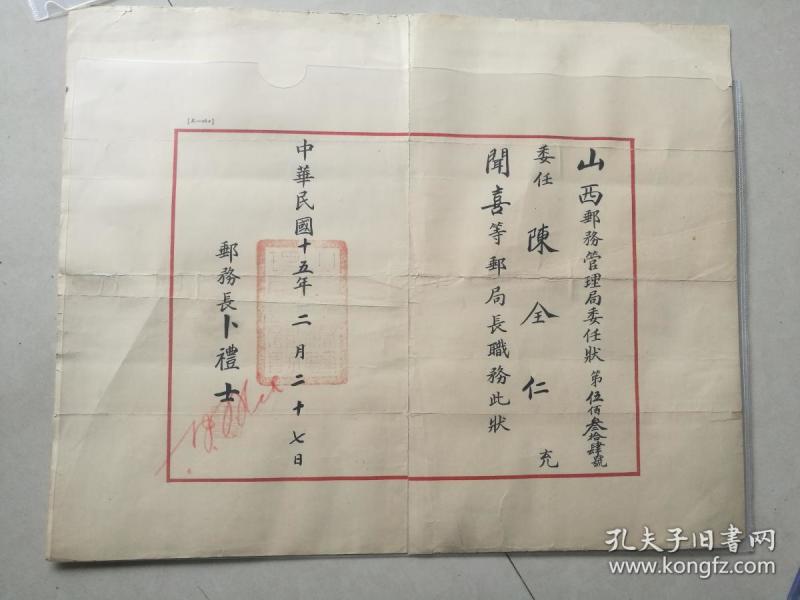 山西郵務管理局委任狀第伍佰叁拾肆號
委任陳全仁充
聞喜等郵局長職務此狀
中華民國十五年二月二十七日
郵務長卜禮士
孔夫子旧书网
www.kongfz.com